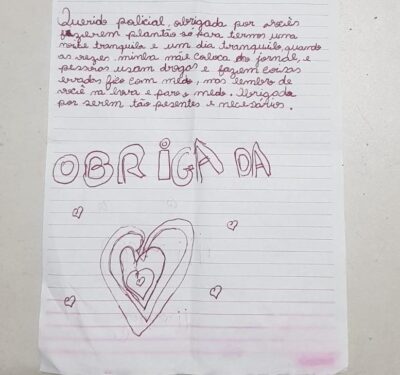 Querido policial, obrigada por vocês
fazerem plantão só para termos uma
noite tranquila e um dia tranquilo, quando
as vezes minha mãe coloca no jornal, e
pessoas usam drogas e fazem coisas
erradas fico com medo, mas lembro de
você na hora e paro o medo. Obrigada
por serem tão pesentes e necesários.
OBRIGADA